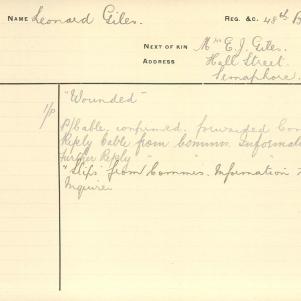 NAME Leonard Giles. REG. &C. 48th B
NEXT OF KIN Mrs E. J. Giles.
ADDRESS Hall Street.
Semaphore.
"Wounded"
1/P P/Cable. confirmed. forwarded Com
Reply Cable from Commn. Informat
further Reply " " "
"Slip" from Commis. Information
Inquiree